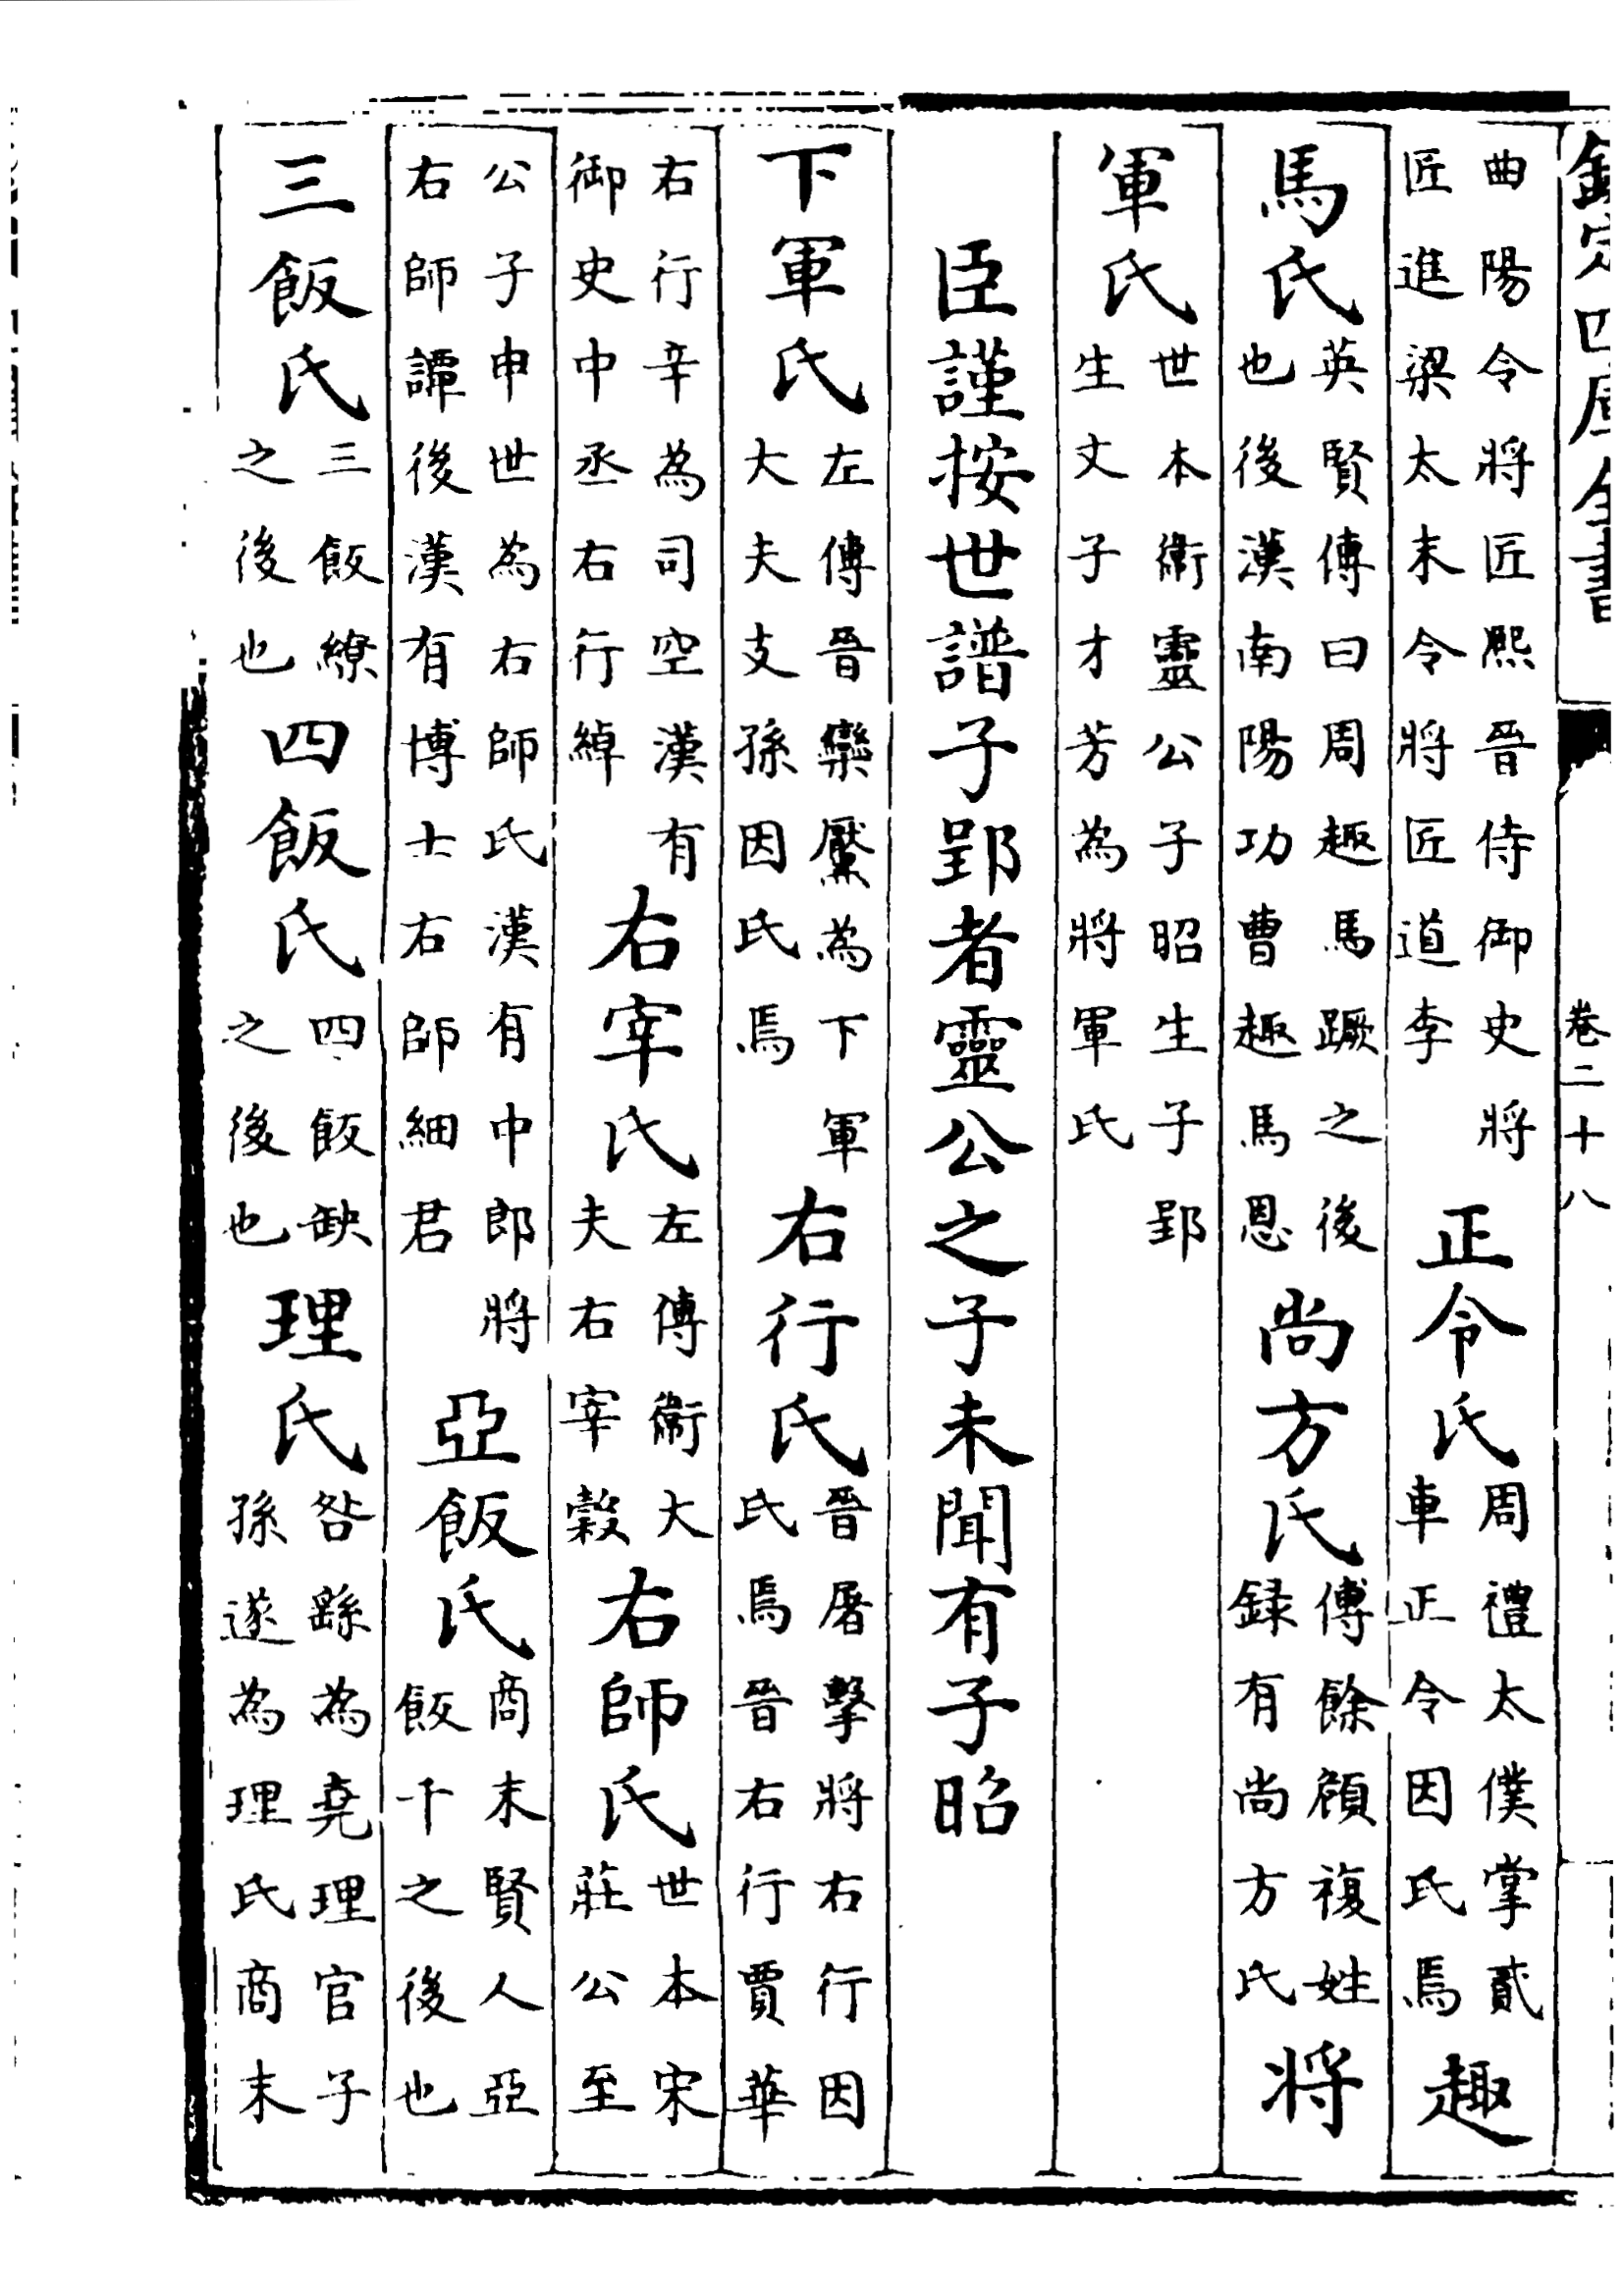 欽定四庫全書
卷二十八
曲陽令將匠熙晉侍御史將
匠進梁太末令將匠道李
正令氏
周禮太僕掌貳
車正令因氏焉
趣
馬氏
英賢傳曰周趣馬蹶之後
也後漢南陽功曹趣馬恩
尚方氏
傅餘頠複姓
録有尚方氏
將
軍氏
世本衛靈公子昭生子郢
生文子才芳為將軍氏
臣謹按世譜子郢者靈公之子未聞有子昭
下軍氏
左傳晉欒黶為下軍
大夫支孫因氏焉
右行氏
晉屠擊將右行因
氏焉晉右行賈華
右行辛為司空漢有
御史中丞右行綽
右宰氏
左傳衛大
夫右宰穀
右師氏
世本宋
莊公至
公子申世為右師氏漢有中郎將
右師譚後漢有博士右師細君
亞飯氏
商末賢人亞
飯干之後也
三飯氏
三飯繚
之後也
四飯氏
四飯缺
之後也
理氏
咎繇為堯理官子
孫遂為理氏商末